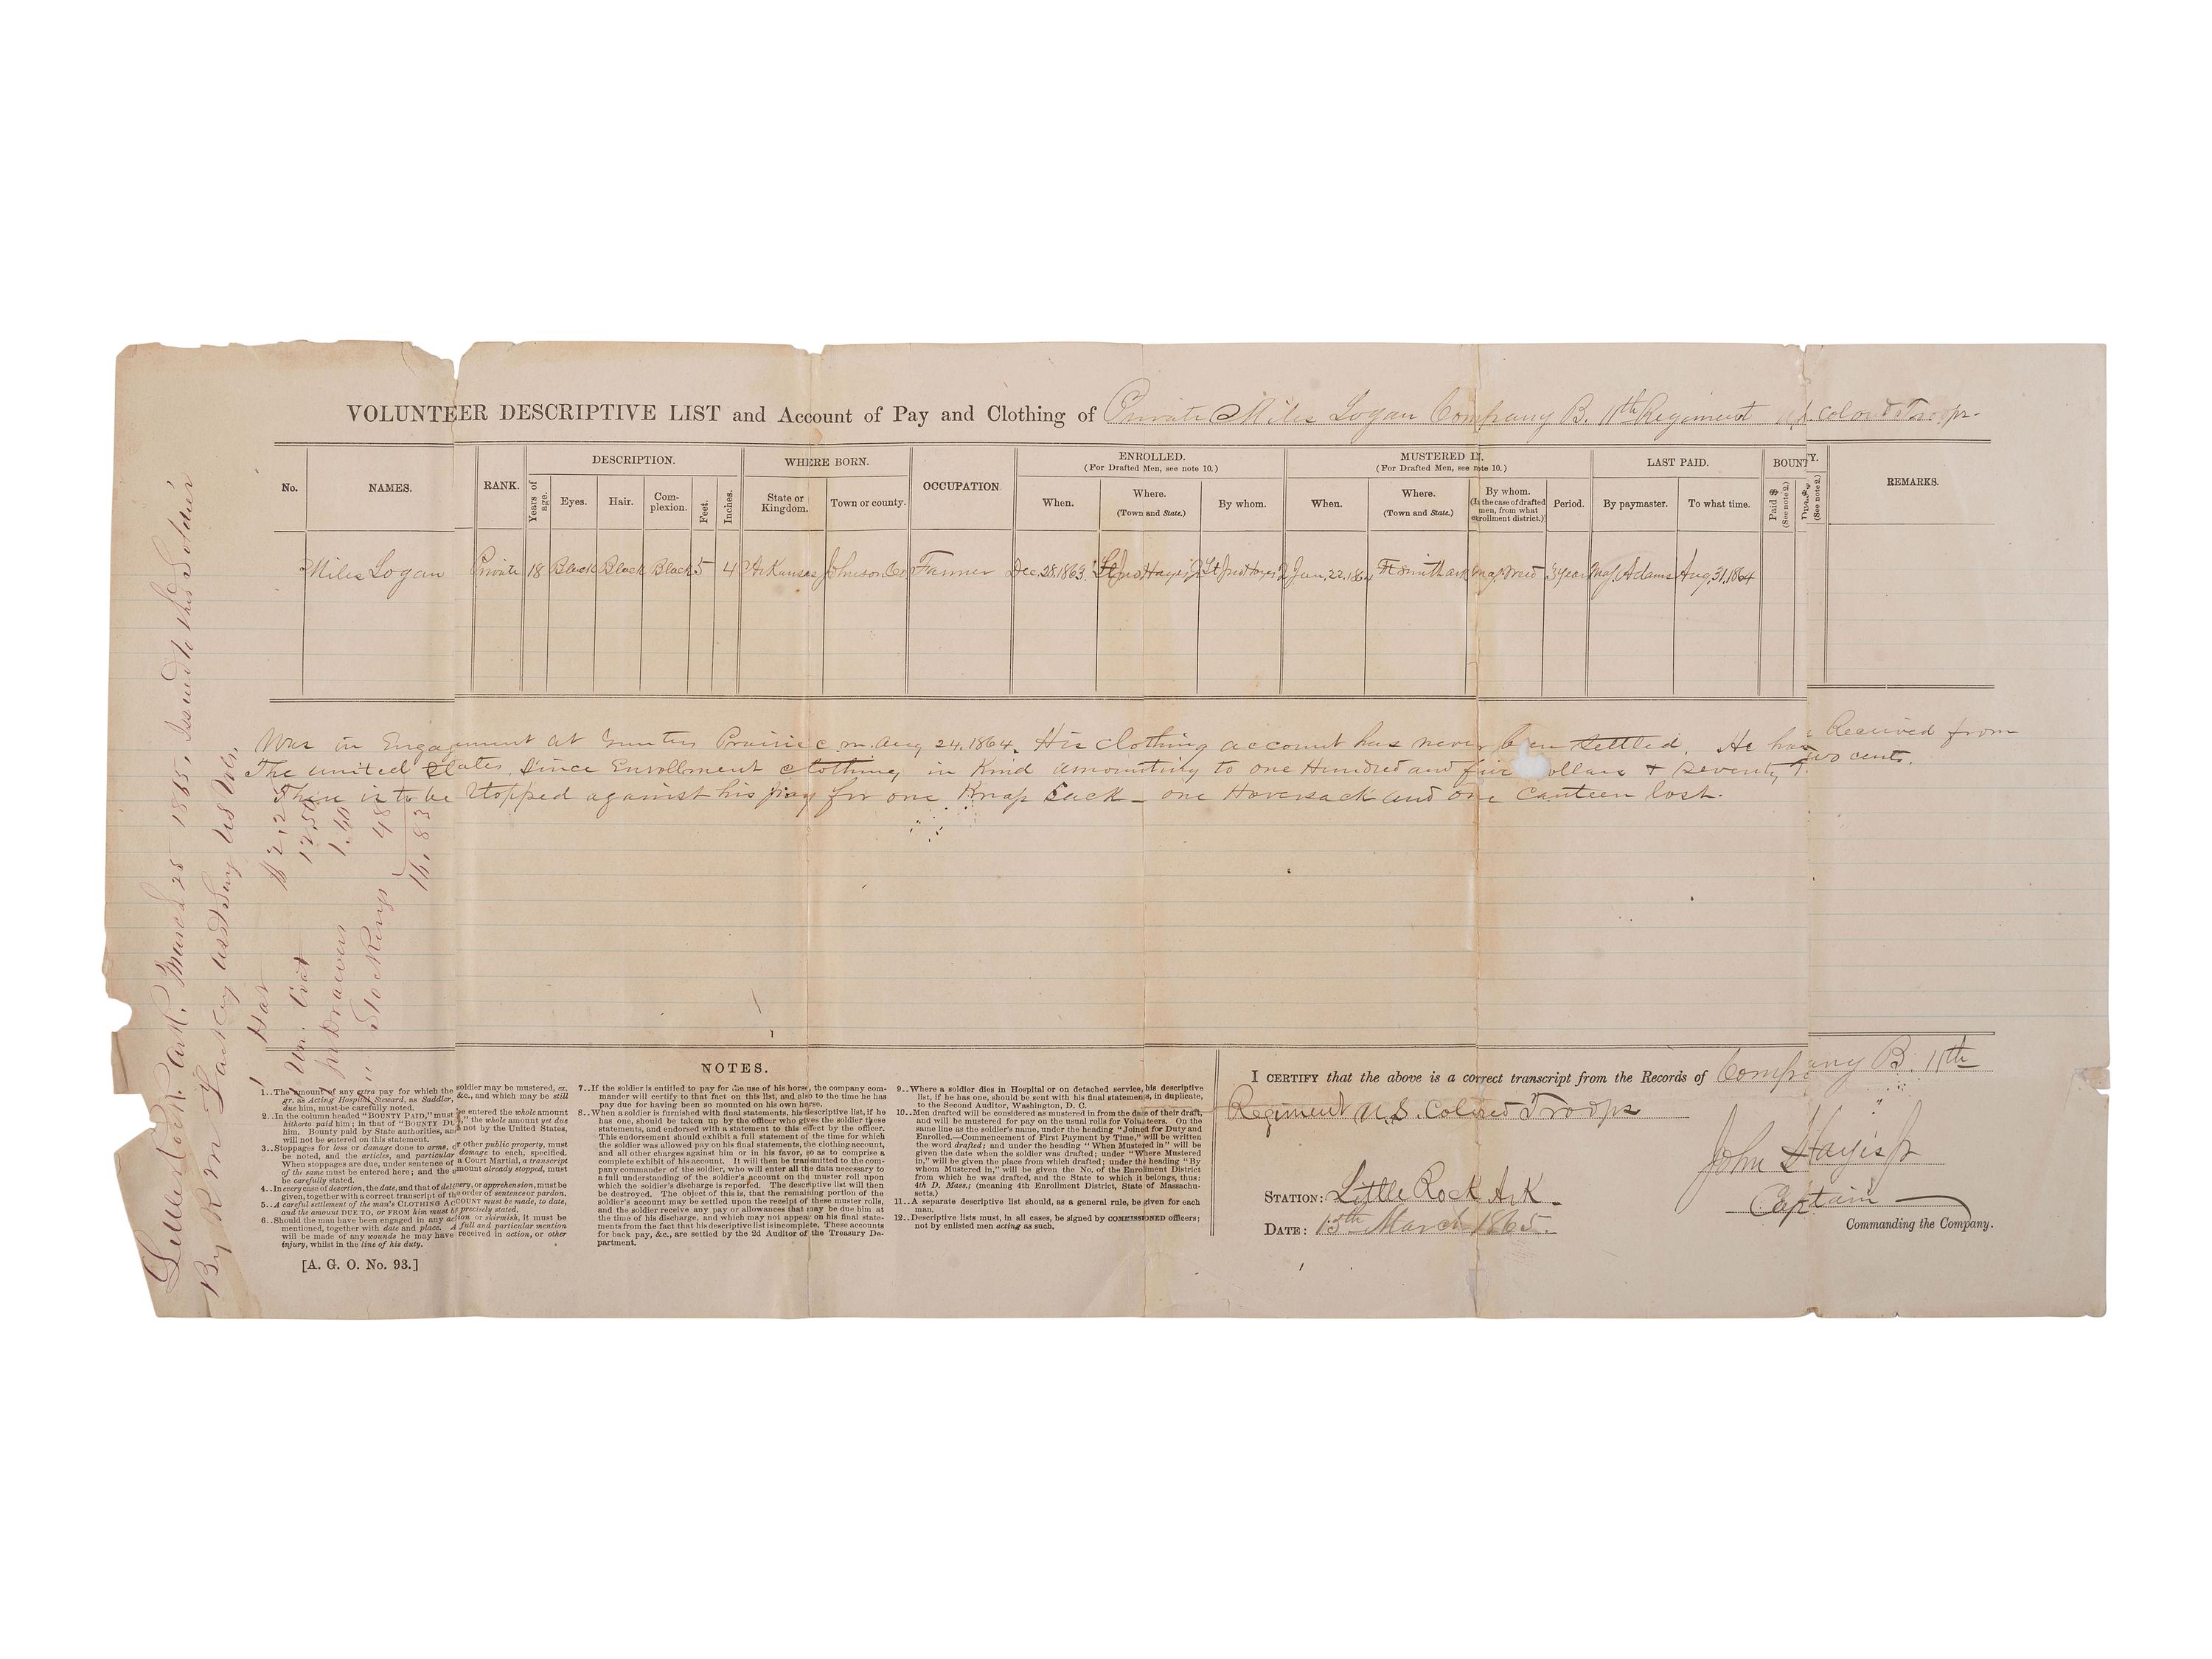 VOLUNTEER DESCRIPTIVE LIST and Account of Pay and Clothing of Private Miles Logan Company B. 11th Regiment U.S. colord Troops.
No. NAMES. RANK. DESCRIPTION. WHERE BORN. OCCUPATION. ENROLLED. (For Drafted Men, see note 10.) MUSTERED IN. (For Drafted Men, see note 10.) LAST PAID. BOUNTY. REMARKS.
Years of age. Eyes. Hair. Complexion. Feet. Inches. State or Kingdom. Town or county. When. Where. (Town and State.) By whom. When. Where. (Town and State.) By whom. (In the case of drafted men, from what enrollment district.) Period. By paymaster. To what time. Paid $ (See note 2.) (See note 2.)
Miles Logan Private 18 Black Black Black 5 4 Arkansas Johnson Co Farmer Dec. 28, 1863. Lt Jno Hayes Jr Lt Jno Hayes Jr Jan. 22, 1864 Ft Smith Ark Maj 3 year Maj. Adams Aug. 31, 1864
Was in Engagement at Gunters Prairie c.n. Aug 24. 1864. His clothing account has never been settled. He has Received from
The united States, Since Enrollment clothing in Kind amounting to one Hundred and five dollars + Seventy Two cents.
There is to be Stopped against his pay for one Knap Sack - one Haversack and one Canteen lost.
Little Rock. Ark. March 25 1865, Issued to this Soldier
By R M Lackey Surg US Vols.
1 Hat $ 2,25
1 Un. Coat 12.50
1 pr Drawers 1.60
1 " Stockings 48
16.83
NOTES.
1..The amount of any extra pay for which the soldier may be mustered, ex.
gr. as Acting Hospital Steward, as Saddler, &c., and which may be still
due him, must be carefully noted.
2..In the column headed "BOUNTY PAID," must be entered the whole amount
hitherto paid him; in that of "BOUNTY DUE," the whole amount yet due
him. Bounty paid by State authorities, and not by the United States,
will not be entered on this statement.
3..Stoppages for loss or damage done to arms, or other public property, must
be noted, and the articles, and particular damage to each, specified.
When stoppages are due, under sentence of a Court Martial, a transcript
of the same must be entered here; and the amount already stopped, must
be carefully stated.
4..In every case of desertion, the date, and that of delivery, or apprehension, must be
given, together with a correct transcript of the order of sentence or pardon.
5..A careful settlement of the man's CLOTHING ACCOUNT must be made, to date,
and the amount DUE TO, or FROM him must be precisely stated.
6..Should the man have been engaged in any action or skirmish, it must be
mentioned, together with date and place. A full and particular mention
will be made of any wounds he may have received in action, or other
injury, whilst in the line of his duty.
[A. G. O. No. 93.]
7..If the soldier is entitled to pay for the use of his horse, the company com-
mander will certify to that fact on this list, and also to the time he has
pay due for having been so mounted on his own horse.
8..When a soldier is furnished with final statements, his descriptive list, if he
has one, should be taken up by the officer who gives the soldier these
statements, and endorsed with a statement to this effect by the officer.
This endorsement should exhibit a full statement of the time for which
the soldier was allowed pay on his final statements, the clothing account,
and all other charges against him or in his favor, so as to comprise a
complete exhibit of his account. It will then be transmitted to the com-
pany commander of the soldier, who will enter all the data necessary to
a full understanding of the soldier's account on the muster roll upon
which the soldier's discharge is reported. The descriptive list will then
be destroyed. The object of this is, that the remaining portion of the
and the soldier receive any pay or allowances that may be due him at
the time of his discharge, and which may not appear on his final state-
ments from the fact that his descriptive list is incomplete. These accounts
for back pay, &c., are settled by the 2d Auditor of the Treasury De-
partment.
9..Where a soldier dies in Hospital or on detached service, his descriptive
list, if he has one, should be sent with his final statements, in duplicate,
to the Second Auditor, Washington, D. C.
10..Men drafted will be considered as mustered in from the date of their draft,
and will be mustered for pay on the usual rolls for Volunteers. On the
same line as the soldier's name, under the heading "Joined for Duty and
Enrolled.—Commencement of First Payment by Time," will be written
the word drafted; and under the heading "When Mustered in" will be
given the date when the soldier was drafted; under "Where Mustered
in," will be given the place from which drafted; under the heading "By
whom Mustered in," will be given the No. of the Enrollment District
from which he was drafted, and the State to which it belongs, thus:
4th D. Mass.; (meaning 4th Enrollment District, State of Massachu-
setts.)
11..A separate descriptive list should, as a general rule, be given for each
man.
12..Descriptive lists must, in all cases, be signed by COMMISSIONED officers;
not by enlisted men acting as such.
I CERTIFY that the above is a correct transcript from the Records of Company B. 11th
Regiment U.S. Colored Troops
John Hayes Jr
STATION: Little Rock Ark
Captain
DATE: 13th March 1865.
Commanding the Company.